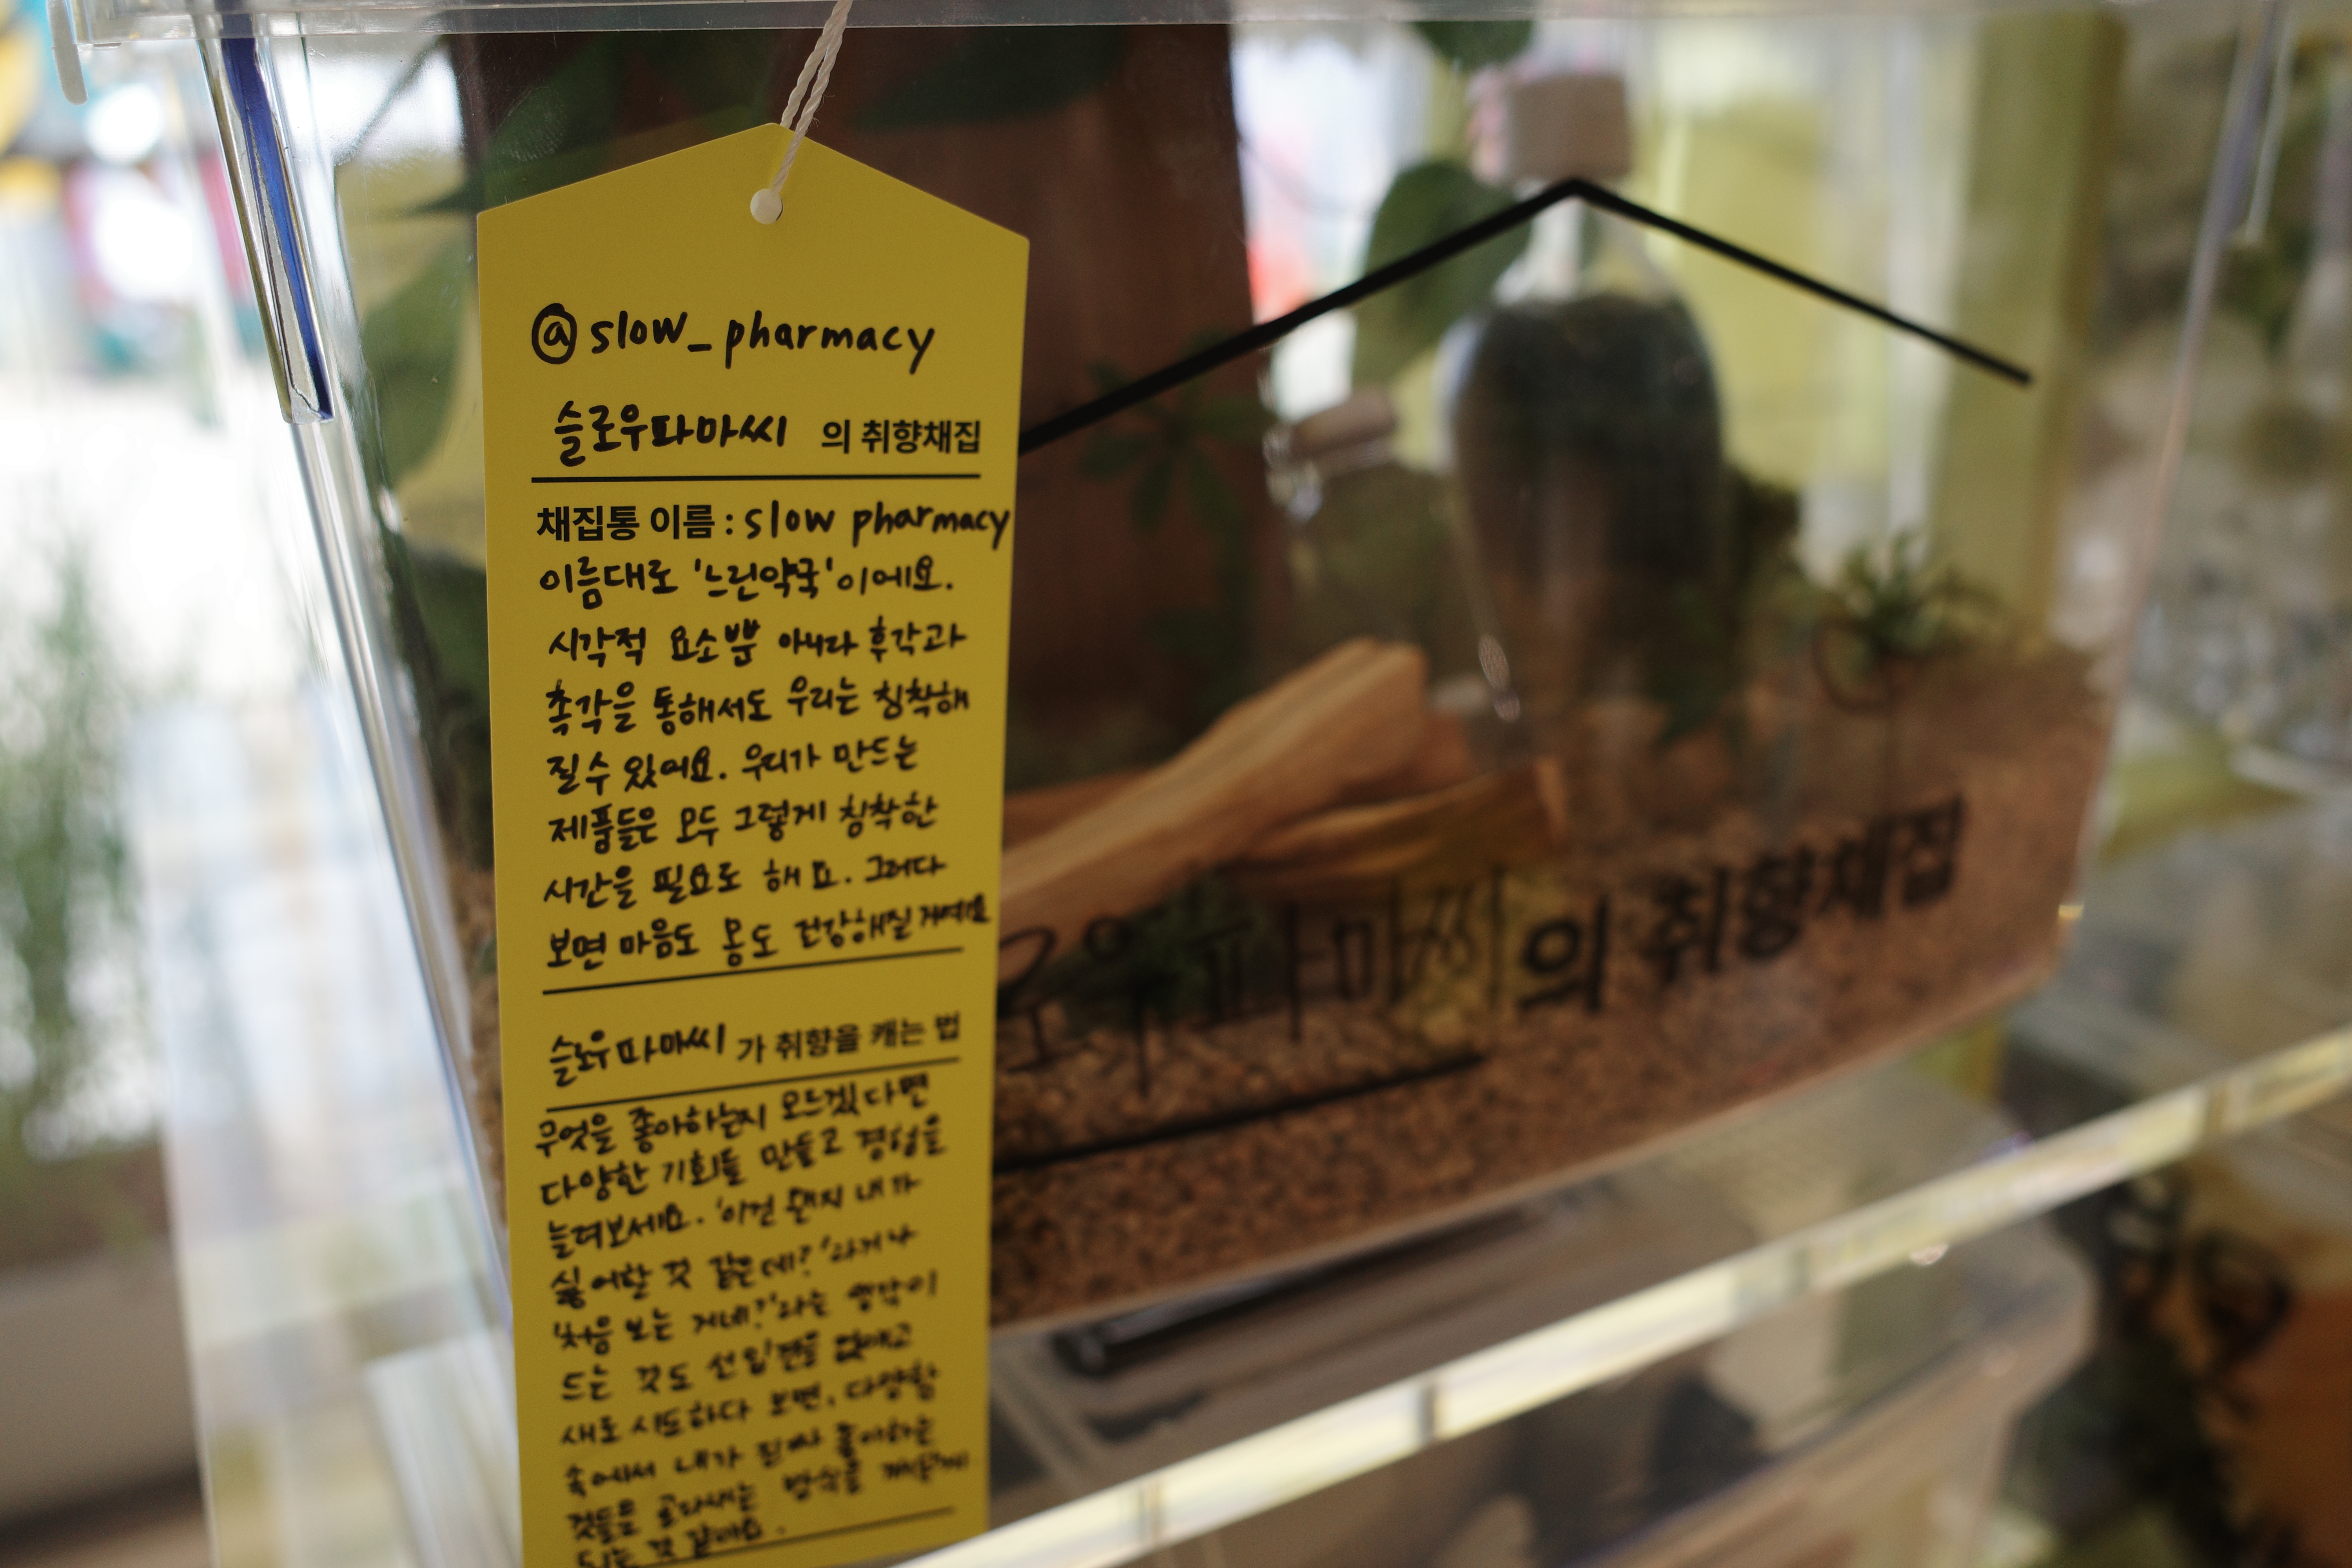 @slow_pharmacy
슬로우파마씨 의 취향채집
채집통 이름 : slow pharmacy
이름대로 '느린약국'이에요.
시각적 요소뿐 아니라 후각과
촉각을 통해서도 우리는 침착해
질수 있어요. 우리가 만드는
제품들은 모두 그렇게 침착한
시간을 필요로 해요. 그러다
보면 마음도 몸도 건강해질거에요
슬로우파마씨 가 취향을 캐는 법
무엇을 좋아하는지 모르겠다면
다양한 기회를 만들고 경험을
늘려보세요. '이건 왠지 내가
싫어할 것 같은데?'라거나
'처음 보는 거네?'라는 생각이
드는 것도 선입견을 없애고
새로 시도하다 보면, 다양함
속에서 내가 진짜 좋아하는
것들을 골라내는 방식을 깨닫게
되는 것 같아요.
로우파마씨의 취향채집